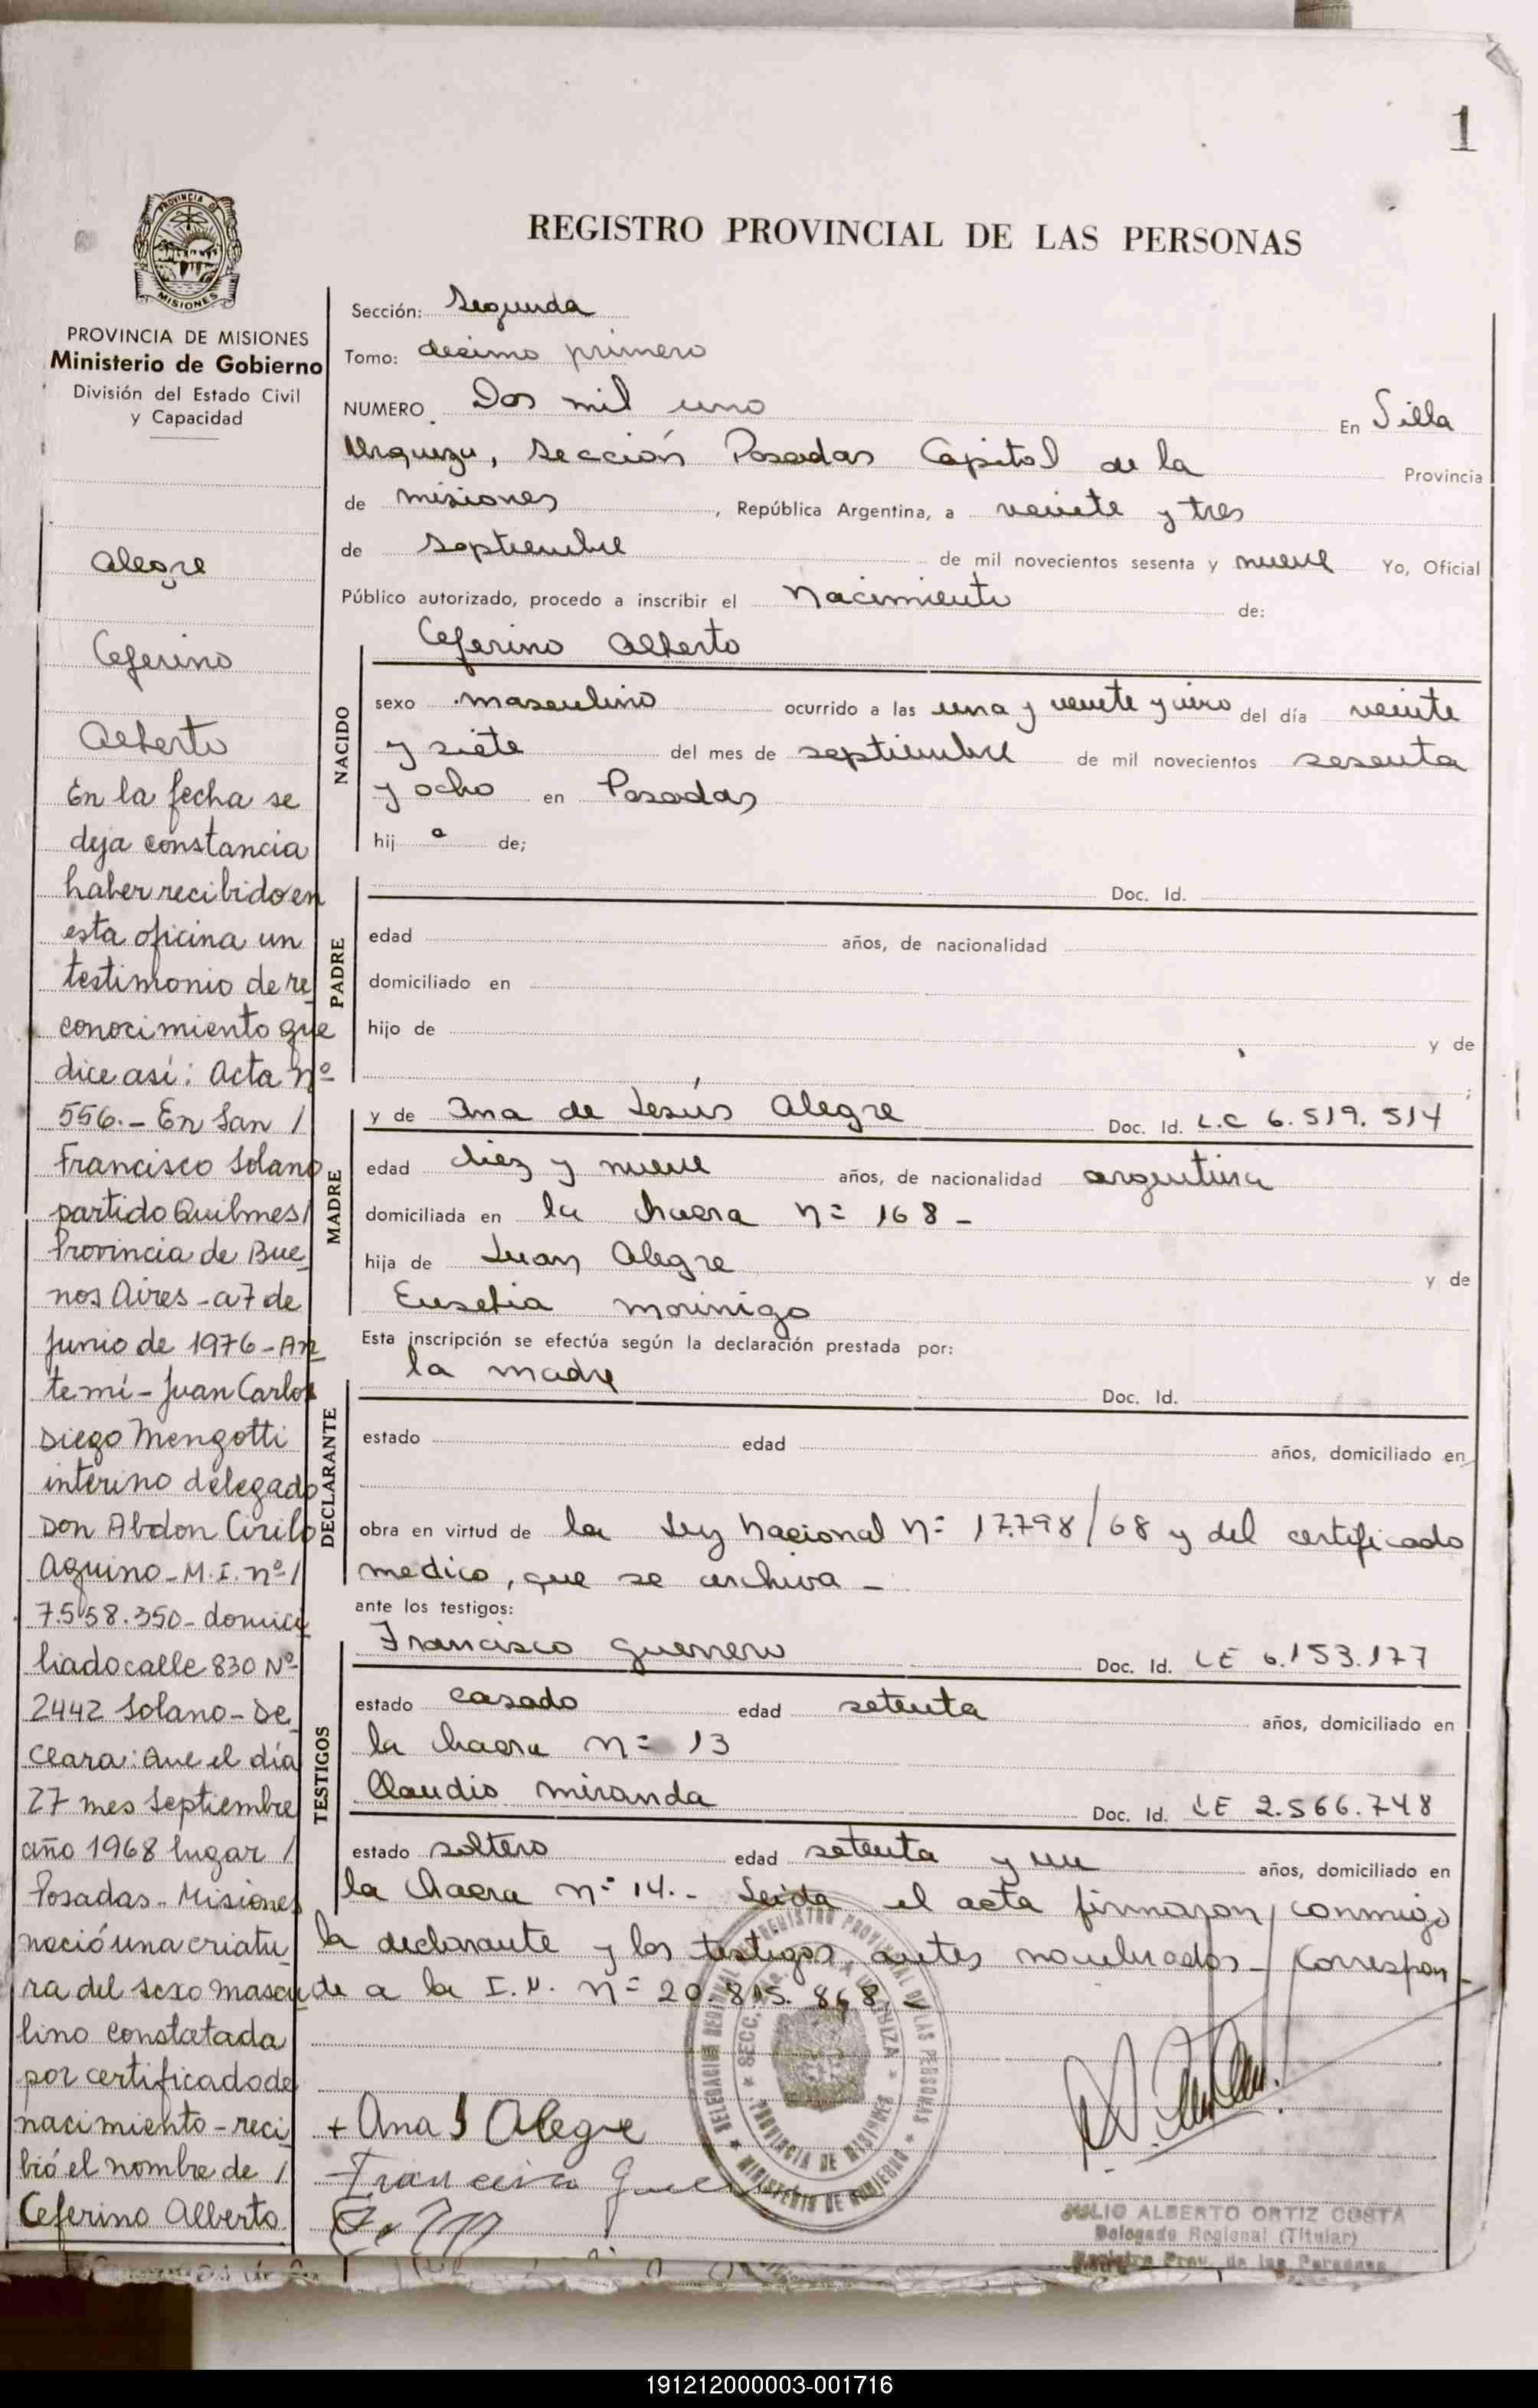 1
PROVINCIA DE
MISIONES
PROVINCIA DE MISIONES
Ministerio de Gobierno
División del Estado Civil
y Capacidad
Alegre
Ceferino
Alberto
En la fecha se
deja constancia
haber recibido en
esta oficina un
testimonio de re
conocimiento que
dice así: Acta Nº
556.- En San /
Francisco Solano
partido Quilmes/
Provincia de Bue
nos Aires - a 7 de
Junio de 1976 - An
te mí - Juan Carlos
Diego Mengotti
interino delegado
Don Abdon Cirilo
Aquino - M.I. nº/
7.558.350 - domici
liado calle 830 Nº
2442 Solano - De
clara: Que el día
27 mes Septiembre
año 1968 lugar /
Posadas - Misiones
nació una criatu
ra del sexo mascu
lino constatada
por certificado de
nacimiento - reci
bió el nombre de /
Ceferino Alberto
REGISTRO PROVINCIAL DE LAS PERSONAS
Sección: Segunda
Tomo: decimo primero
NUMERO Dos mil uno En Villa
Urquiza, Sección Posadas Capital de la Provincia
de misiones, República Argentina, a veinte y tres
de septiembre de mil novecientos sesenta y nueve Yo, Oficial
Público autorizado, procedo a inscribir el nacimiento de:
Ceferino Alberto
NACIDO
sexo masculino ocurrido a las una y veinte y cinco del día veinte
y siete del mes de septiembre de mil novecientos sesenta
y ocho en Posadas
hij o de;
PADRE
Doc. Id.
edad años, de nacionalidad
domiciliado en
hijo de y de
;
MADRE
y de Ana de Jesús Alegre Doc. Id. L.C 6.519.514
edad diez y nueve años, de nacionalidad argentina
domiciliada en la chacra nº 168 -
hija de Juan Alegre y de
Eusebia morinigo
Esta inscripción se efectúa según la declaración prestada por:
DECLARANTE
la madre Doc. Id.
estado edad años, domiciliado en
obra en virtud de la Ley Nacional nº 17.798/68 y del certificado
medico, que se archiva -
ante los testigos:
TESTIGOS
Francisco guerrero Doc. Id. LE 6.153.177
estado casado edad setenta años, domiciliado en
la chacra nº 13
Claudio miranda Doc. Id. LE 2.566.748
estado soltero edad setenta y un años, domiciliado en
la chacra nº 14.- Leida el acta firmaron conmigo
la declarante y los testigos antes nombrados - Correspon-
de a la I.N. nº 20.815.868 -
+ Ana J Alegre
Francisco
JULIO ALBERTO ORTIZ COSTA
Delegado Regional (Titular)
Registro Prov. de las Personas
191212000003-001716